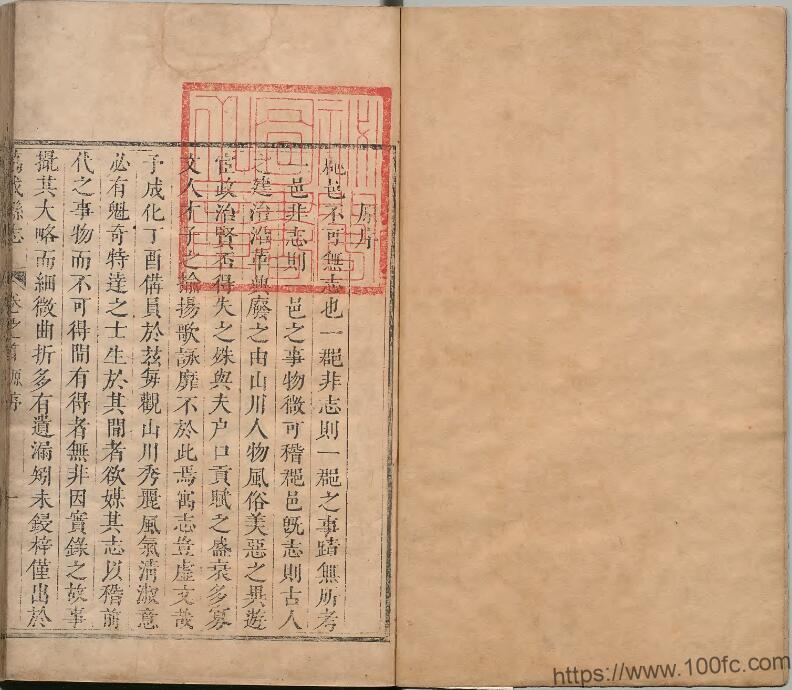 原序
郡邑不可無志也一郡非志則一郡之事蹟無所考
一邑非志則一邑之事物微可稽郡邑旣志則古人
之建治沿革興廢之由山川人物風俗美惡之異遊
宦政治賢否得失之殊與夫户口貢賦之盛衰多寡
文人才子之揄揚歌詠靡不於此焉寓志豈虛文哉
予成化丁酉備員於茲每觀山川秀麗風氣清淑意
必有魁奇特達之士生於其間者欲媒其志以稽前
代之事物而不可得間有得者無非因實錄之故事
撮其大略而細微曲折多有遺漏矧未鋟梓僅出於
縣志 卷之首 原序 一
https://www.100fc.com